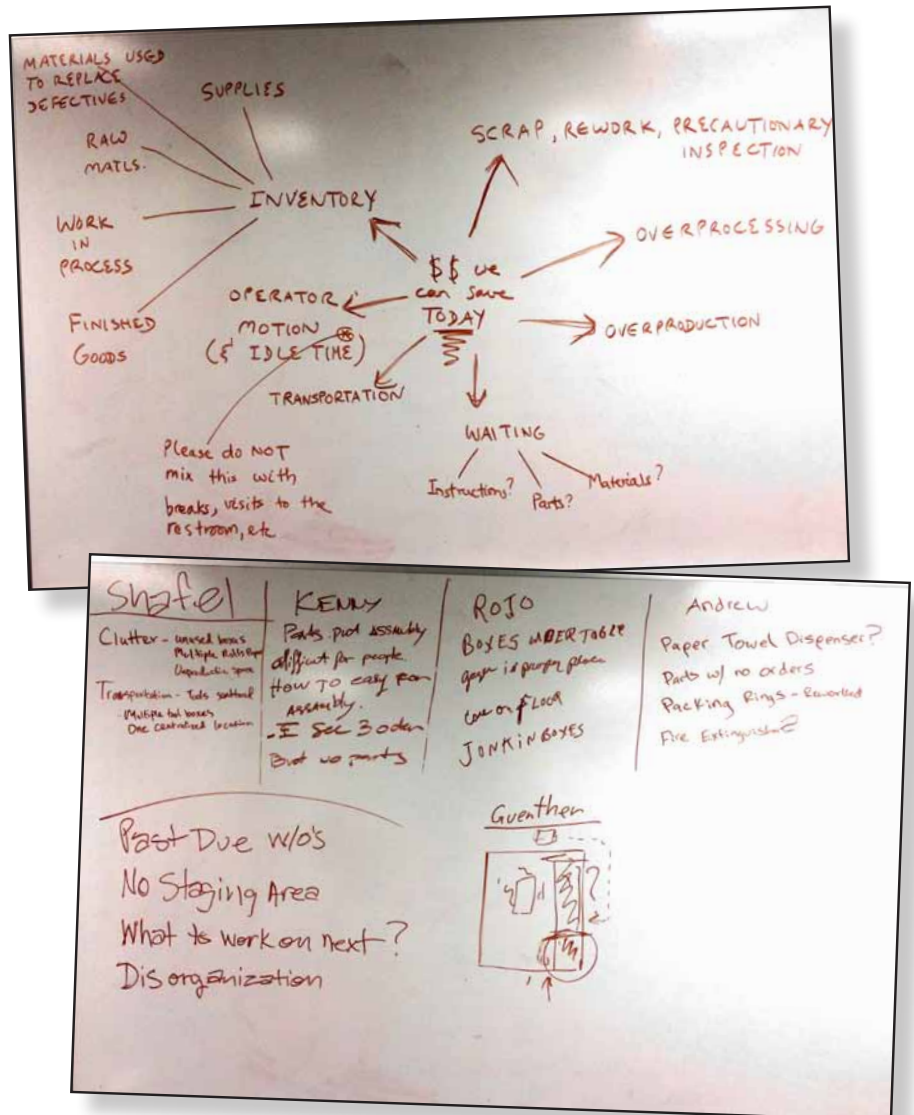 MATERIALS USED
TO REPLACE
DEFECTIVES
SUPPLIES
RAW
MATLS.
INVENTORY
WORK
IN
PROCESS
FINISHED
GOODS
SCRAP, REWORK, PRECAUTIONARY
INSPECTION
OVERPROCESSING
$$ we
can save
TODAY
OVERPRODUCTION
OPERATOR
MOTION
(& IDLE TIME)
TRANSPORTATION
WAITING
Instructions?
Parts?
Materials?
Please do NOT
mix this with
breaks, visits to the
restroom, etc
Clutter - unused boxes
Multiple Rolls
space
Transportation - Tools
- Multiple tool boxes
One centralized location
KENNY
Parts ASSEMBLY
difficult for people.
HOW TO easy for
ASSEMBLY.
- I See 3 oder
But no parts
ROJO
BOXES UNDER TABLE
in proper place
on FLOOR
JONK IN BOXES
Andrew
Paper Towel Dispenser?
Parts w/ no orders
Packing Rings - Reworked
Fire Extinguisher?
Past Due W/O's
No Staging Area
What to work on next?
Disorganization
Guenther